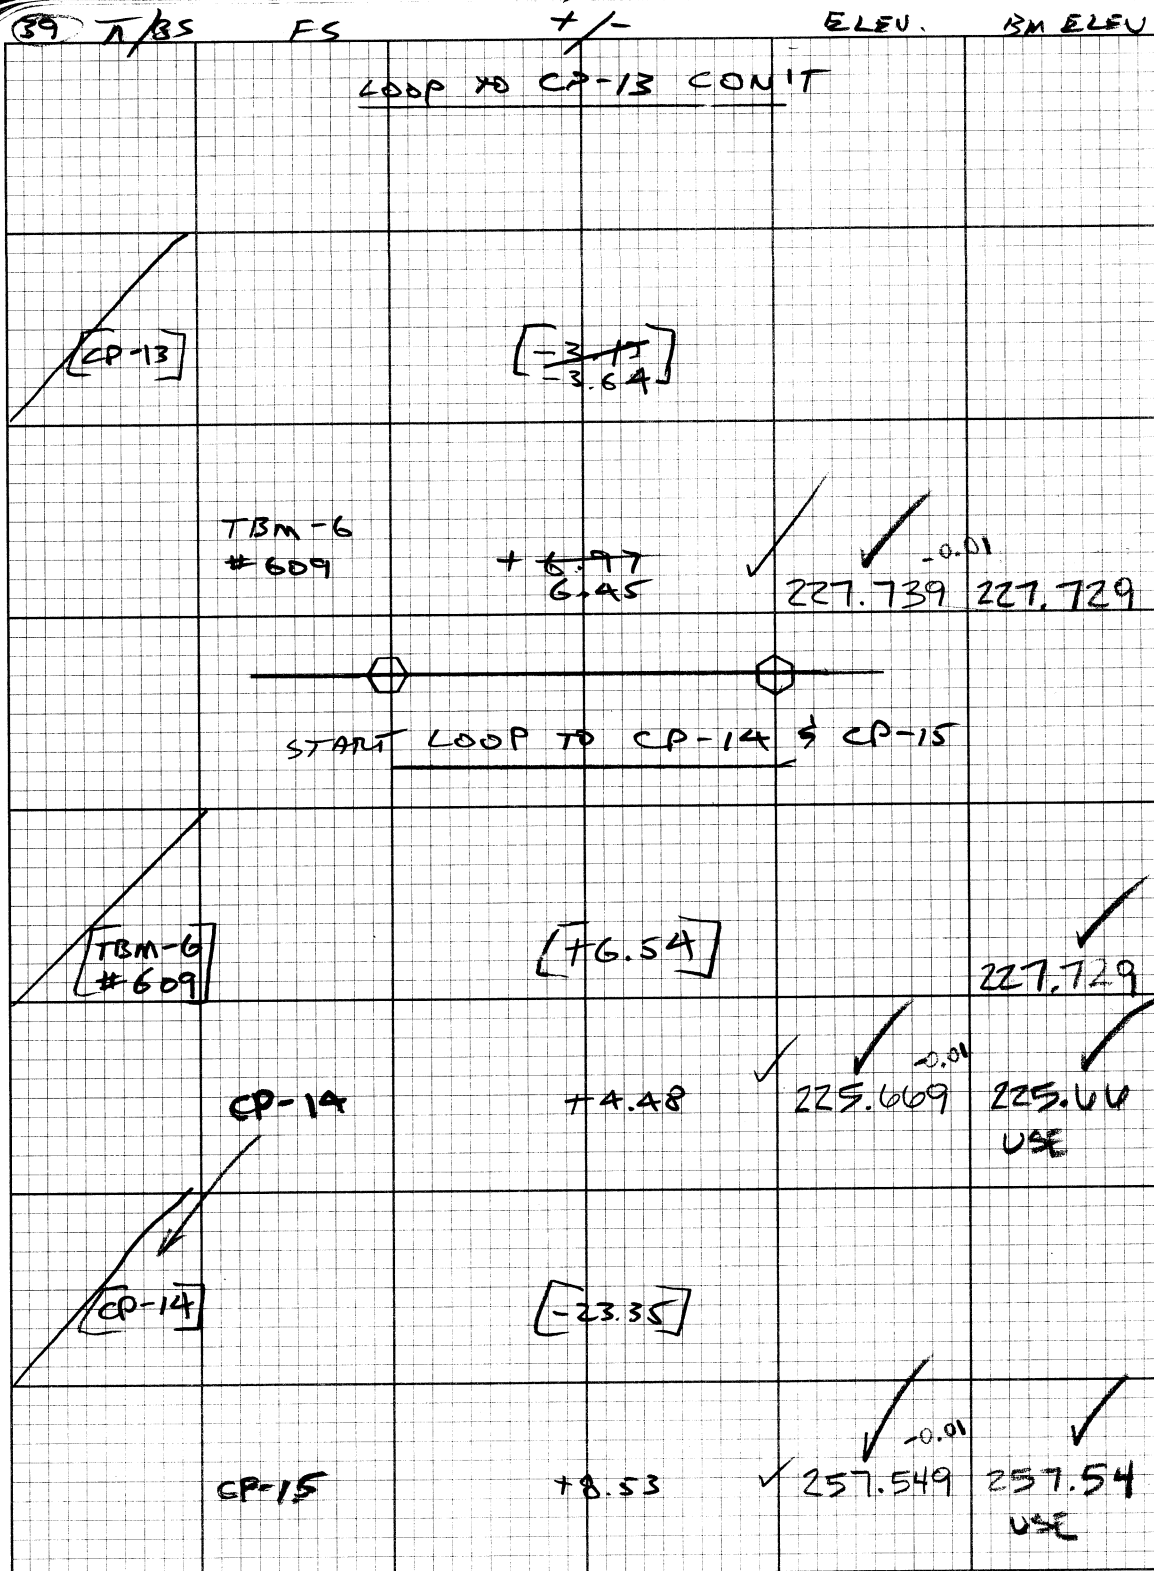 39 π/BS FS +/- ELEV. BM ELEV
LOOP TO CP-13 CON'T
[CP-13] [-3.64]
TBM-6
#609 + 6.97 -0.01
6.45 227.739 227.729
START LOOP TO CP-14 & CP-15
[TBM-6 [+6.54]
#609] 227.729
-0.01
CP-14 +4.48 225.669 225.66
USE
[CP-14] [-23.35]
-0.01
CP-15 +8.53 257.549 257.54
USE